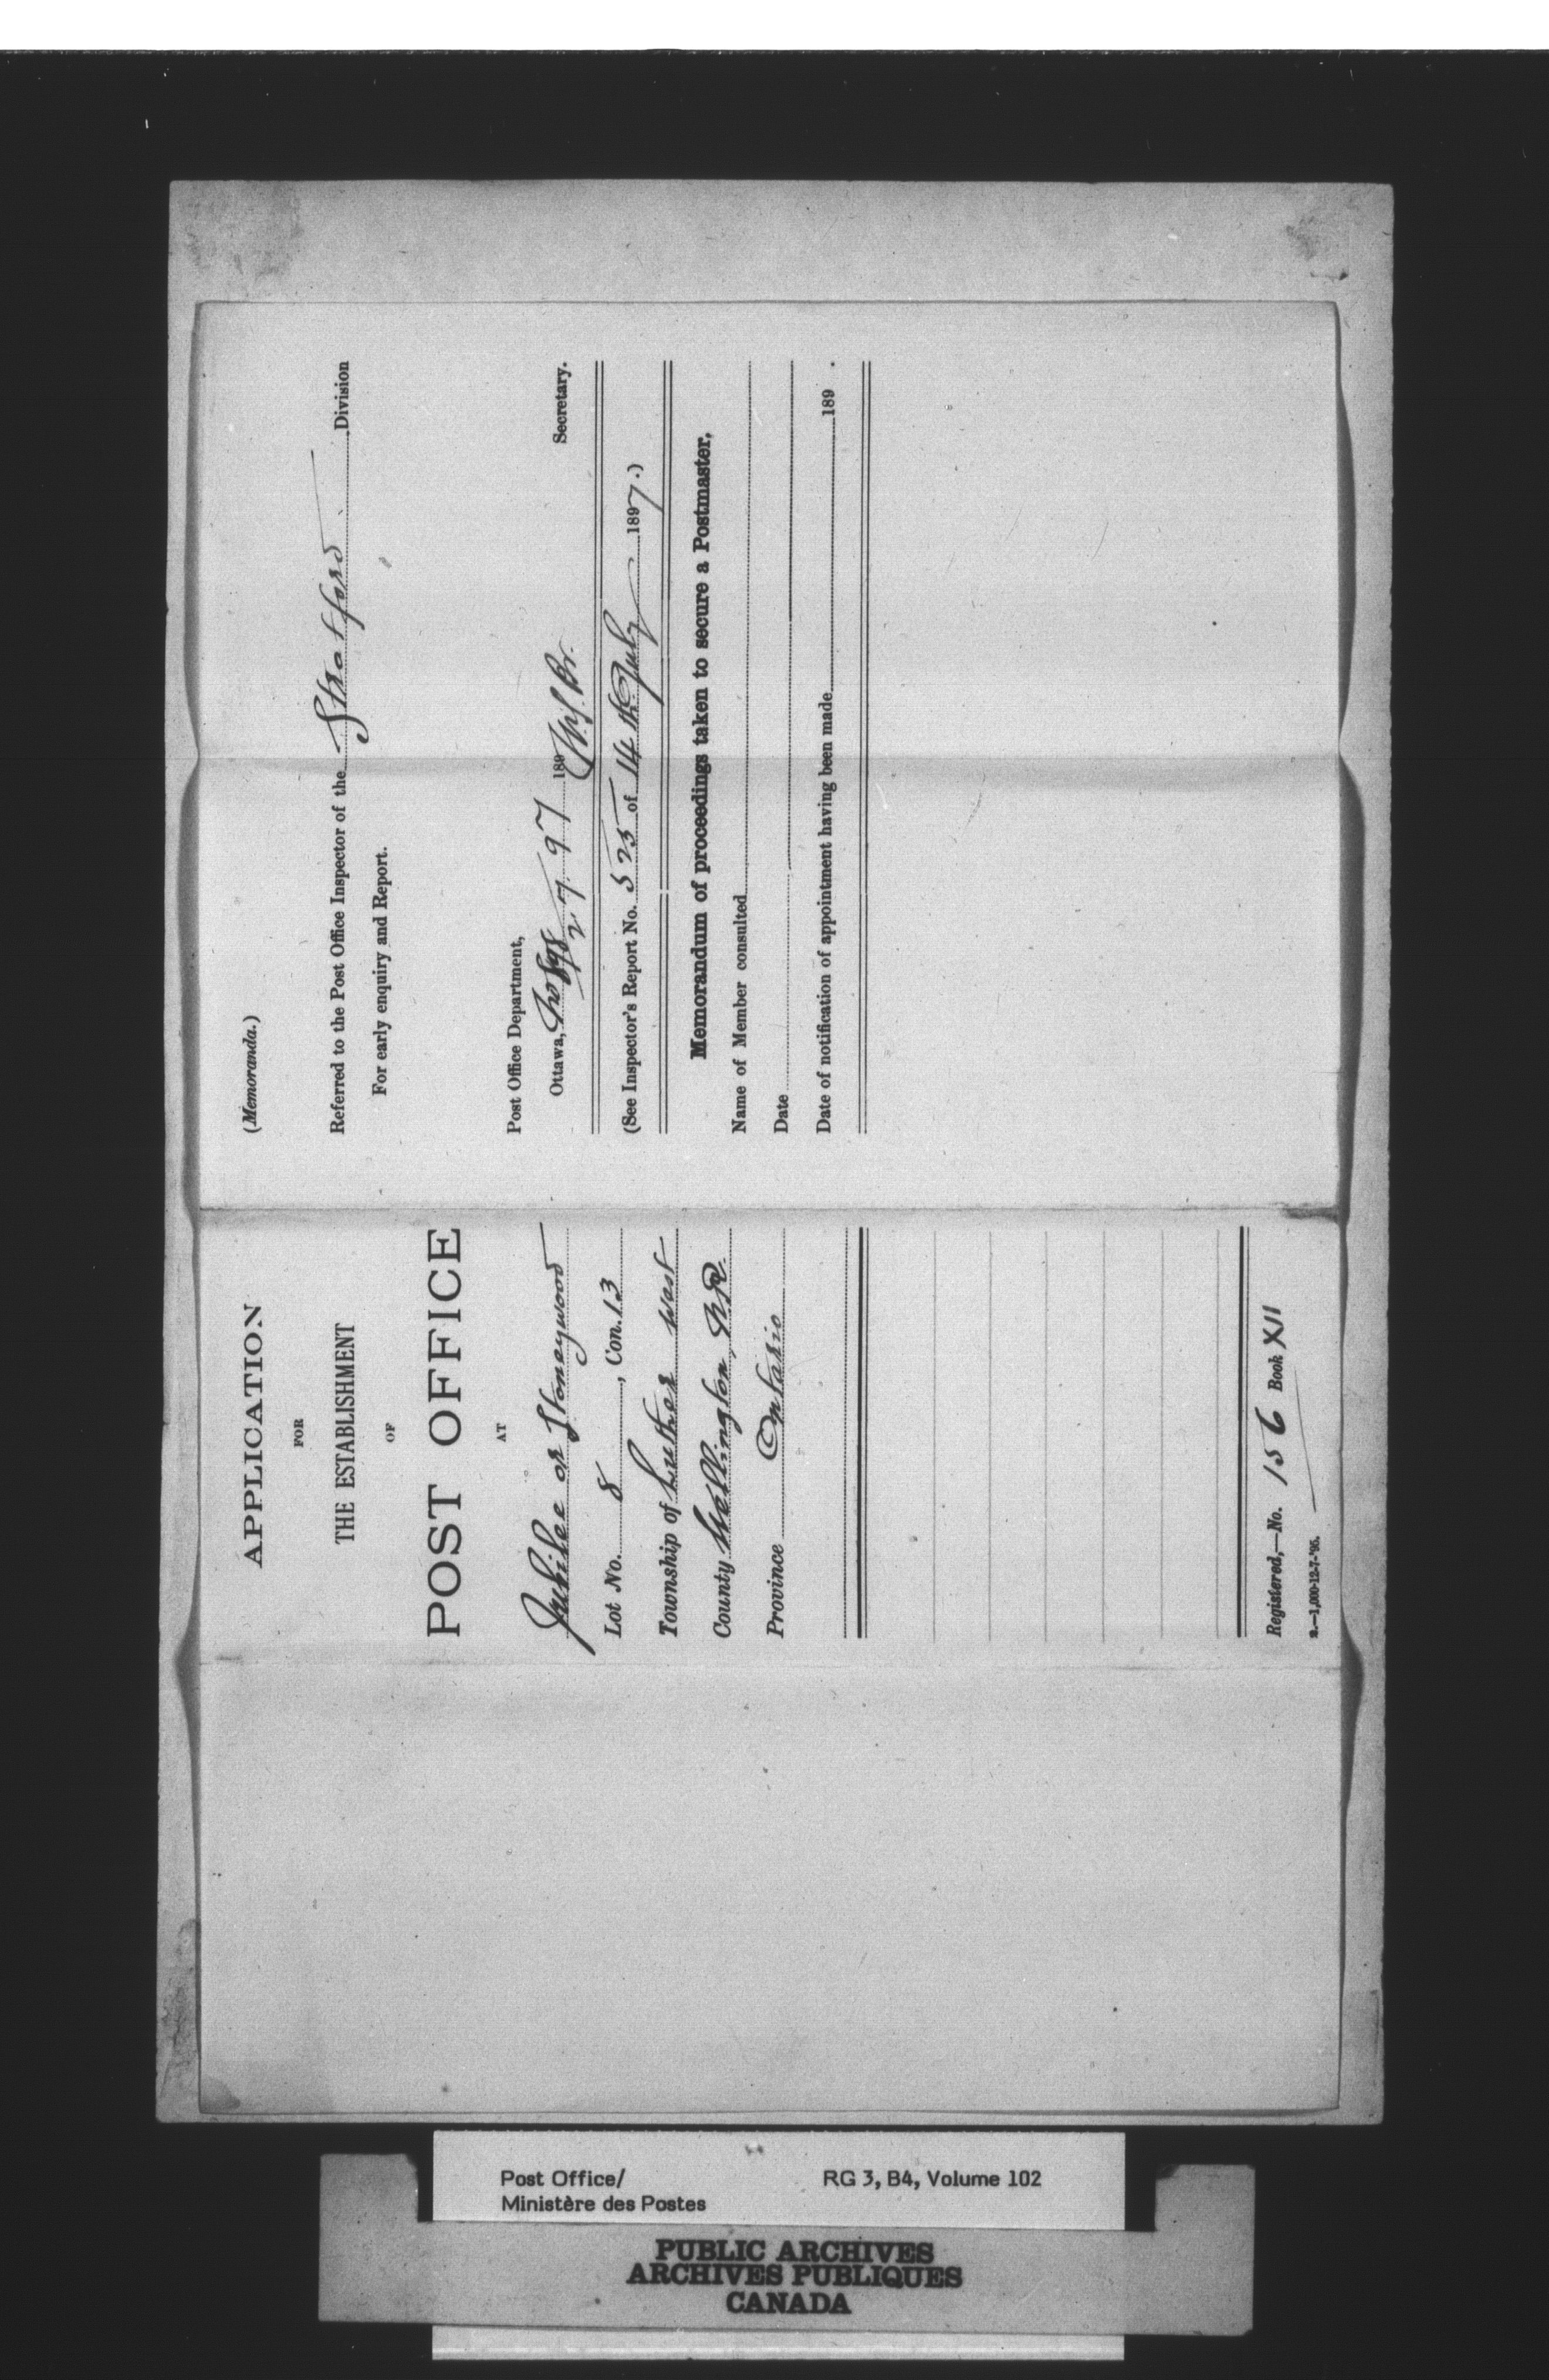 APPLICATION
FOR
THE ESTABLISHMENT
OF
POST OFFICE
AT
Jubilee or Stoneywood
Lot No. 8, Con. 13
Township of Luther West
County Wellington, N.R.
Province Ontario
Registered,—No. 156 Book XII
2.—1,000-12-7-'95.
(Memoranda.)
Referred to the Post Office Inspector of the Stratford Division
For early enquiry and Report.
Post Office Department,
Ottawa, 2 7 97 189
Secretary.
(See Inspector's Report No. 525 of 14th July 1897.)
Memorandum of proceedings taken to secure a Postmaster,
Name of Member consulted
Date
Date of notification of appointment having been made 189 .
Post Office/ RG 3, B4, Volume 102
Ministère des Postes
PUBLIC ARCHIVES
ARCHIVES PUBLIQUES
CANADA